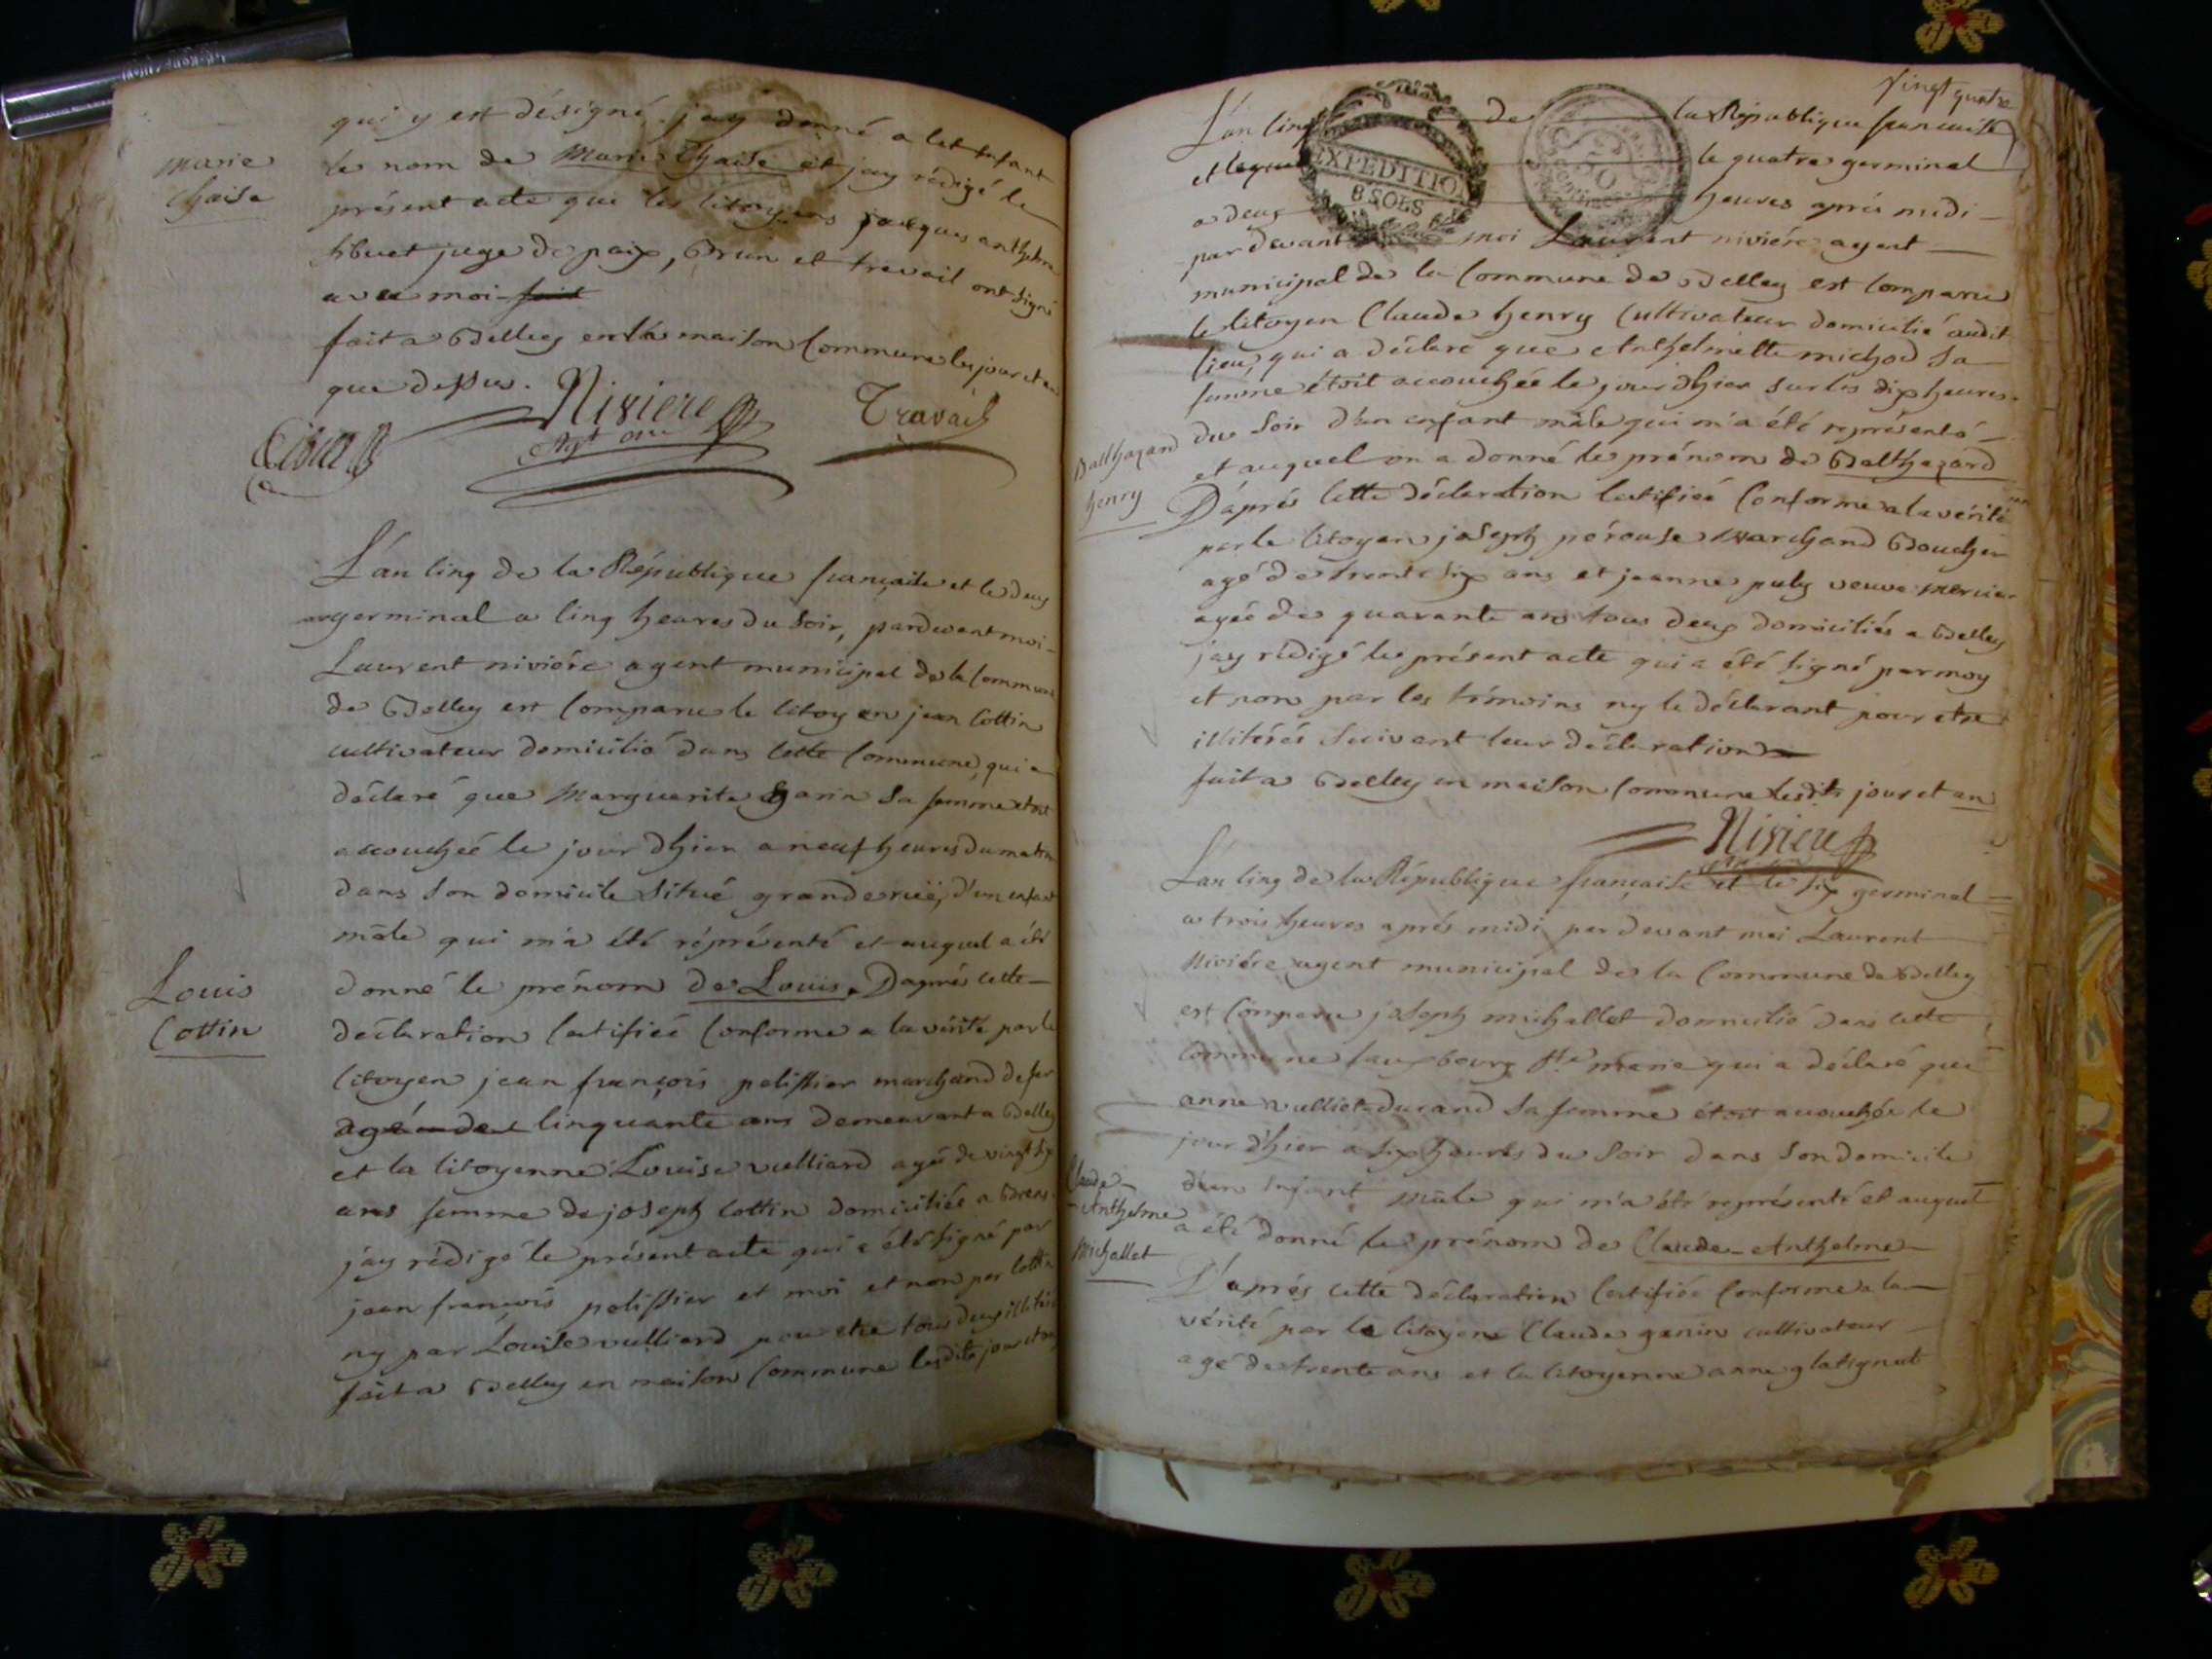 qui y est désigné. j'ay donné a cet enfant
marie
chaise
le nom de Marie Chaise et jay rédigé le
présent acte que les citoyens jacques anthelme
huet juge de paix, Brun et travail ont signé
avec moi fait
fait a Belley en la maison Commune les jour et an
que dessus.
Niviere
agt
Travail
L'an cinq de la République française et le deux
germinal a cinq heures du soir, pardevant moi
Laurent nivière agent municipal de la commune
de Belley est comparu le citoyen jean Cottin
cultivateur domicilié dans cette commune, qui a
déclaré que Marguerite garin sa femme etoit
accouchée le jour d'hier a neuf heures du matin
dans son domicile situé grande ruë, d'un enfant
mâle qui m'a été réprésenté et auquel a été
Louis
Cottin
donné le prénom de Louis. D'après cette
déclaration certifiée conforme a la vérité par le
citoyen jean françois pelissier marchand de fer
agé de cinquante ans demeurant a Belley
et la citoyenne Louise vulliard agée de vingt six
ans femme de joseph Cottin domiciliée a Brens
j'ay rédigé le présent acte qui a été signé par
jean françois pelissier et moi et non par cottin
ny par Louise vulliard pour etre tous deux illitérés
fait a Belley en maison Commune lesdits jour et an
Vingt quatre
L'an cinq de la République française
et le quatre germinal
EXPEDITION
8 SOLS
a deux heures après midi
pardevant moi Laurent nivière agent
municipal de la Commune de Belley est comparu
le citoyen Claude henry Cultivateur domicilié audit
lieu, qui a déclaré que Anthelmette michod sa
femme étoit accouchée le jour d'hier sur les dix heures
du soir d'un enfant mâle qui m'a été représenté
Balthazard
henry
et auquel on a donné le prénom de Balthazard
D'après cette déclaration certifiée Conforme a la vérité
par le citoyen joseph pérouse Marchand Boucher
agé de trente six ans et jeanne puly veuve mercier
agée de quarante ans tous deux domiciliés a Belley
j'ay rédigé le présent acte qui a été signé par moy
et non par les témoins ny le déclarant pour etre
illitérés suivant leur déclaration
fait a Belley en maison commune lesdits jour et an
Niviere
L'an cinq de la République française et le six germinal
a trois heures après midi pardevant moi Laurent
Nivière agent municipal de la Commune de Belley
est comparu joseph michallet domicilié dans cette
commune fauxbourg Ste marie qui a déclaré que
anne vulliet durand sa femme étoit accouchée le
jour d'hier a six heures du soir dans son domicile
d'un enfant mâle qui m'a été représenté et auquel
Claude-
Anthelme
Michallet
a été donné le prénom de Claude-Anthelme
D'après cette déclaration Certifiée Conforme a la
vérité par le citoyen Claude genin cultivateur
agé de trente ans et la citoyenne anne glatignet